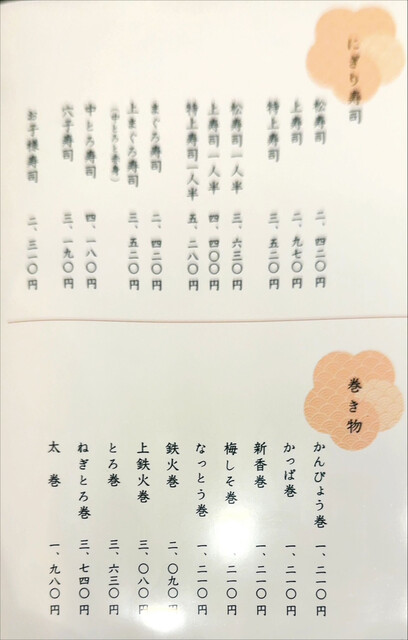 にぎり寿司
松寿司 二、四二〇円
上寿司 二、九七〇円
特上寿司 三、五二〇円
松寿司一人半 三、六三〇円
上寿司一人半 四、四〇〇円
特上寿司一人半 五、二八〇円
まぐろ寿司 二、四二〇円
上まぐろ寿司 三、五二〇円
(中とろと赤身)
中とろ寿司 四、一八〇円
穴子寿司 三、一九〇円
お子様寿司 二、三一〇円
巻き物
かんぴょう巻 一、二一〇円
かっぱ巻 一、二一〇円
新香巻 一、二一〇円
梅しそ巻 一、二一〇円
なっとう巻 一、二一〇円
鉄火巻 二、〇九〇円
上鉄火巻 三、〇八〇円
とろ巻 三、六三〇円
ねぎとろ巻 三、七四〇円
太巻 一、九八〇円